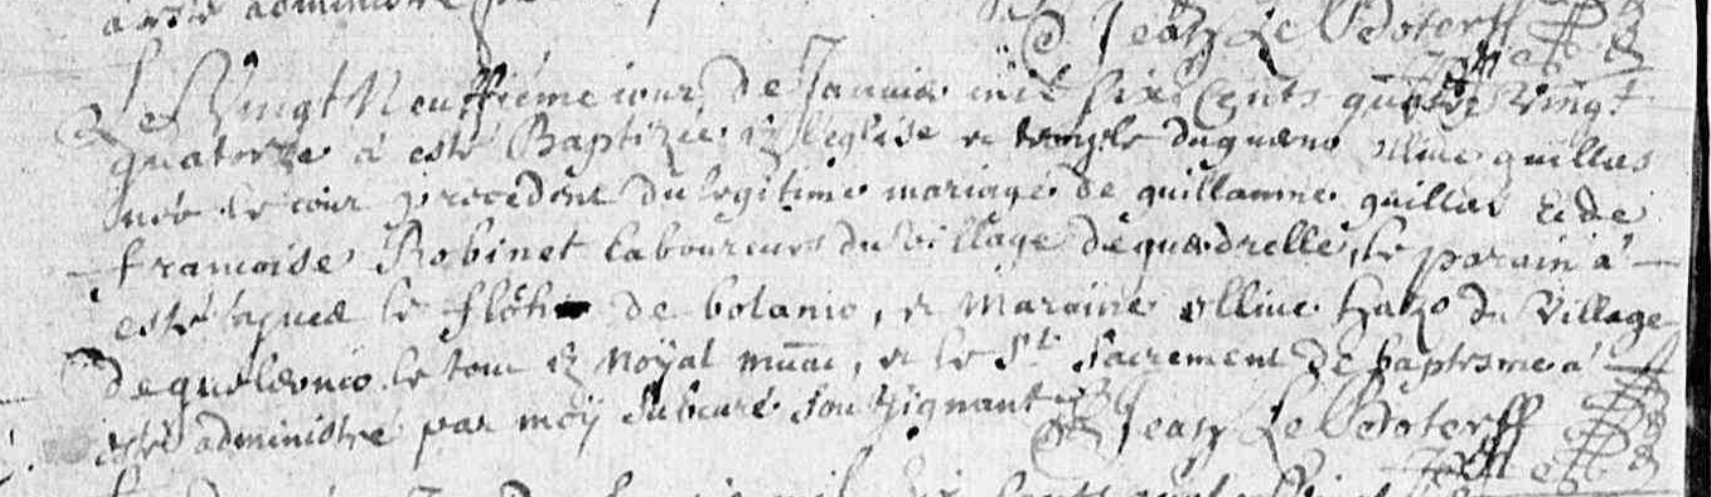 à esté administré
Jean Le Bdoterff
Le Vingt Neuffiéme iour de Januier mil six Cents quatre Vingt
quatorze à esté Baptizée en l'église et temple duguerno ollive quillas
néé le iour precedent du legitime mariage de guillamme quillas et de
francoise Robinet laboureurs du Village de querdrelle, le parain à
esté le floh de bolanio, et Maraine ollive du Village
de le tout en Noÿal muac, et le St. Sacrement de baptesme à
esté administré par moÿ subcuré soubzignant Jean Le Bdoterff